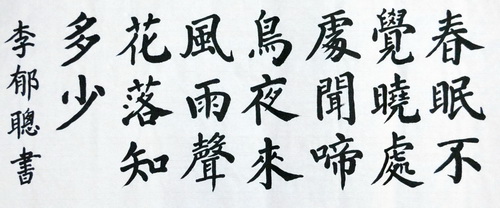 春眠不
覺曉處
處聞啼
鳥夜來
風雨聲
花落知
多少
李郁聰書